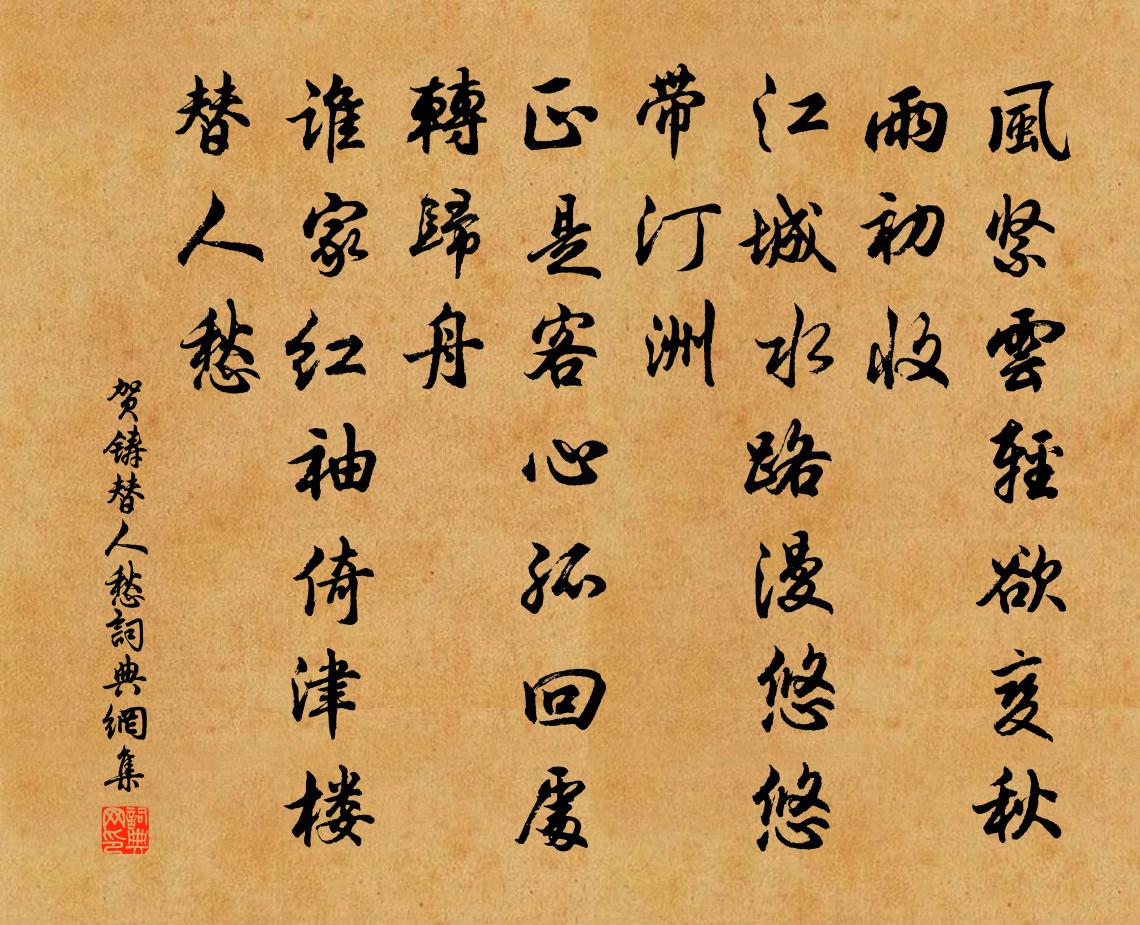 風紧雲輕欲变秋
雨初收
江城水路漫悠悠
带汀洲
正是客心孤回處
轉歸舟
谁家红袖倚津楼
替人愁
贺鑄替人愁詞典網集
詞典网印